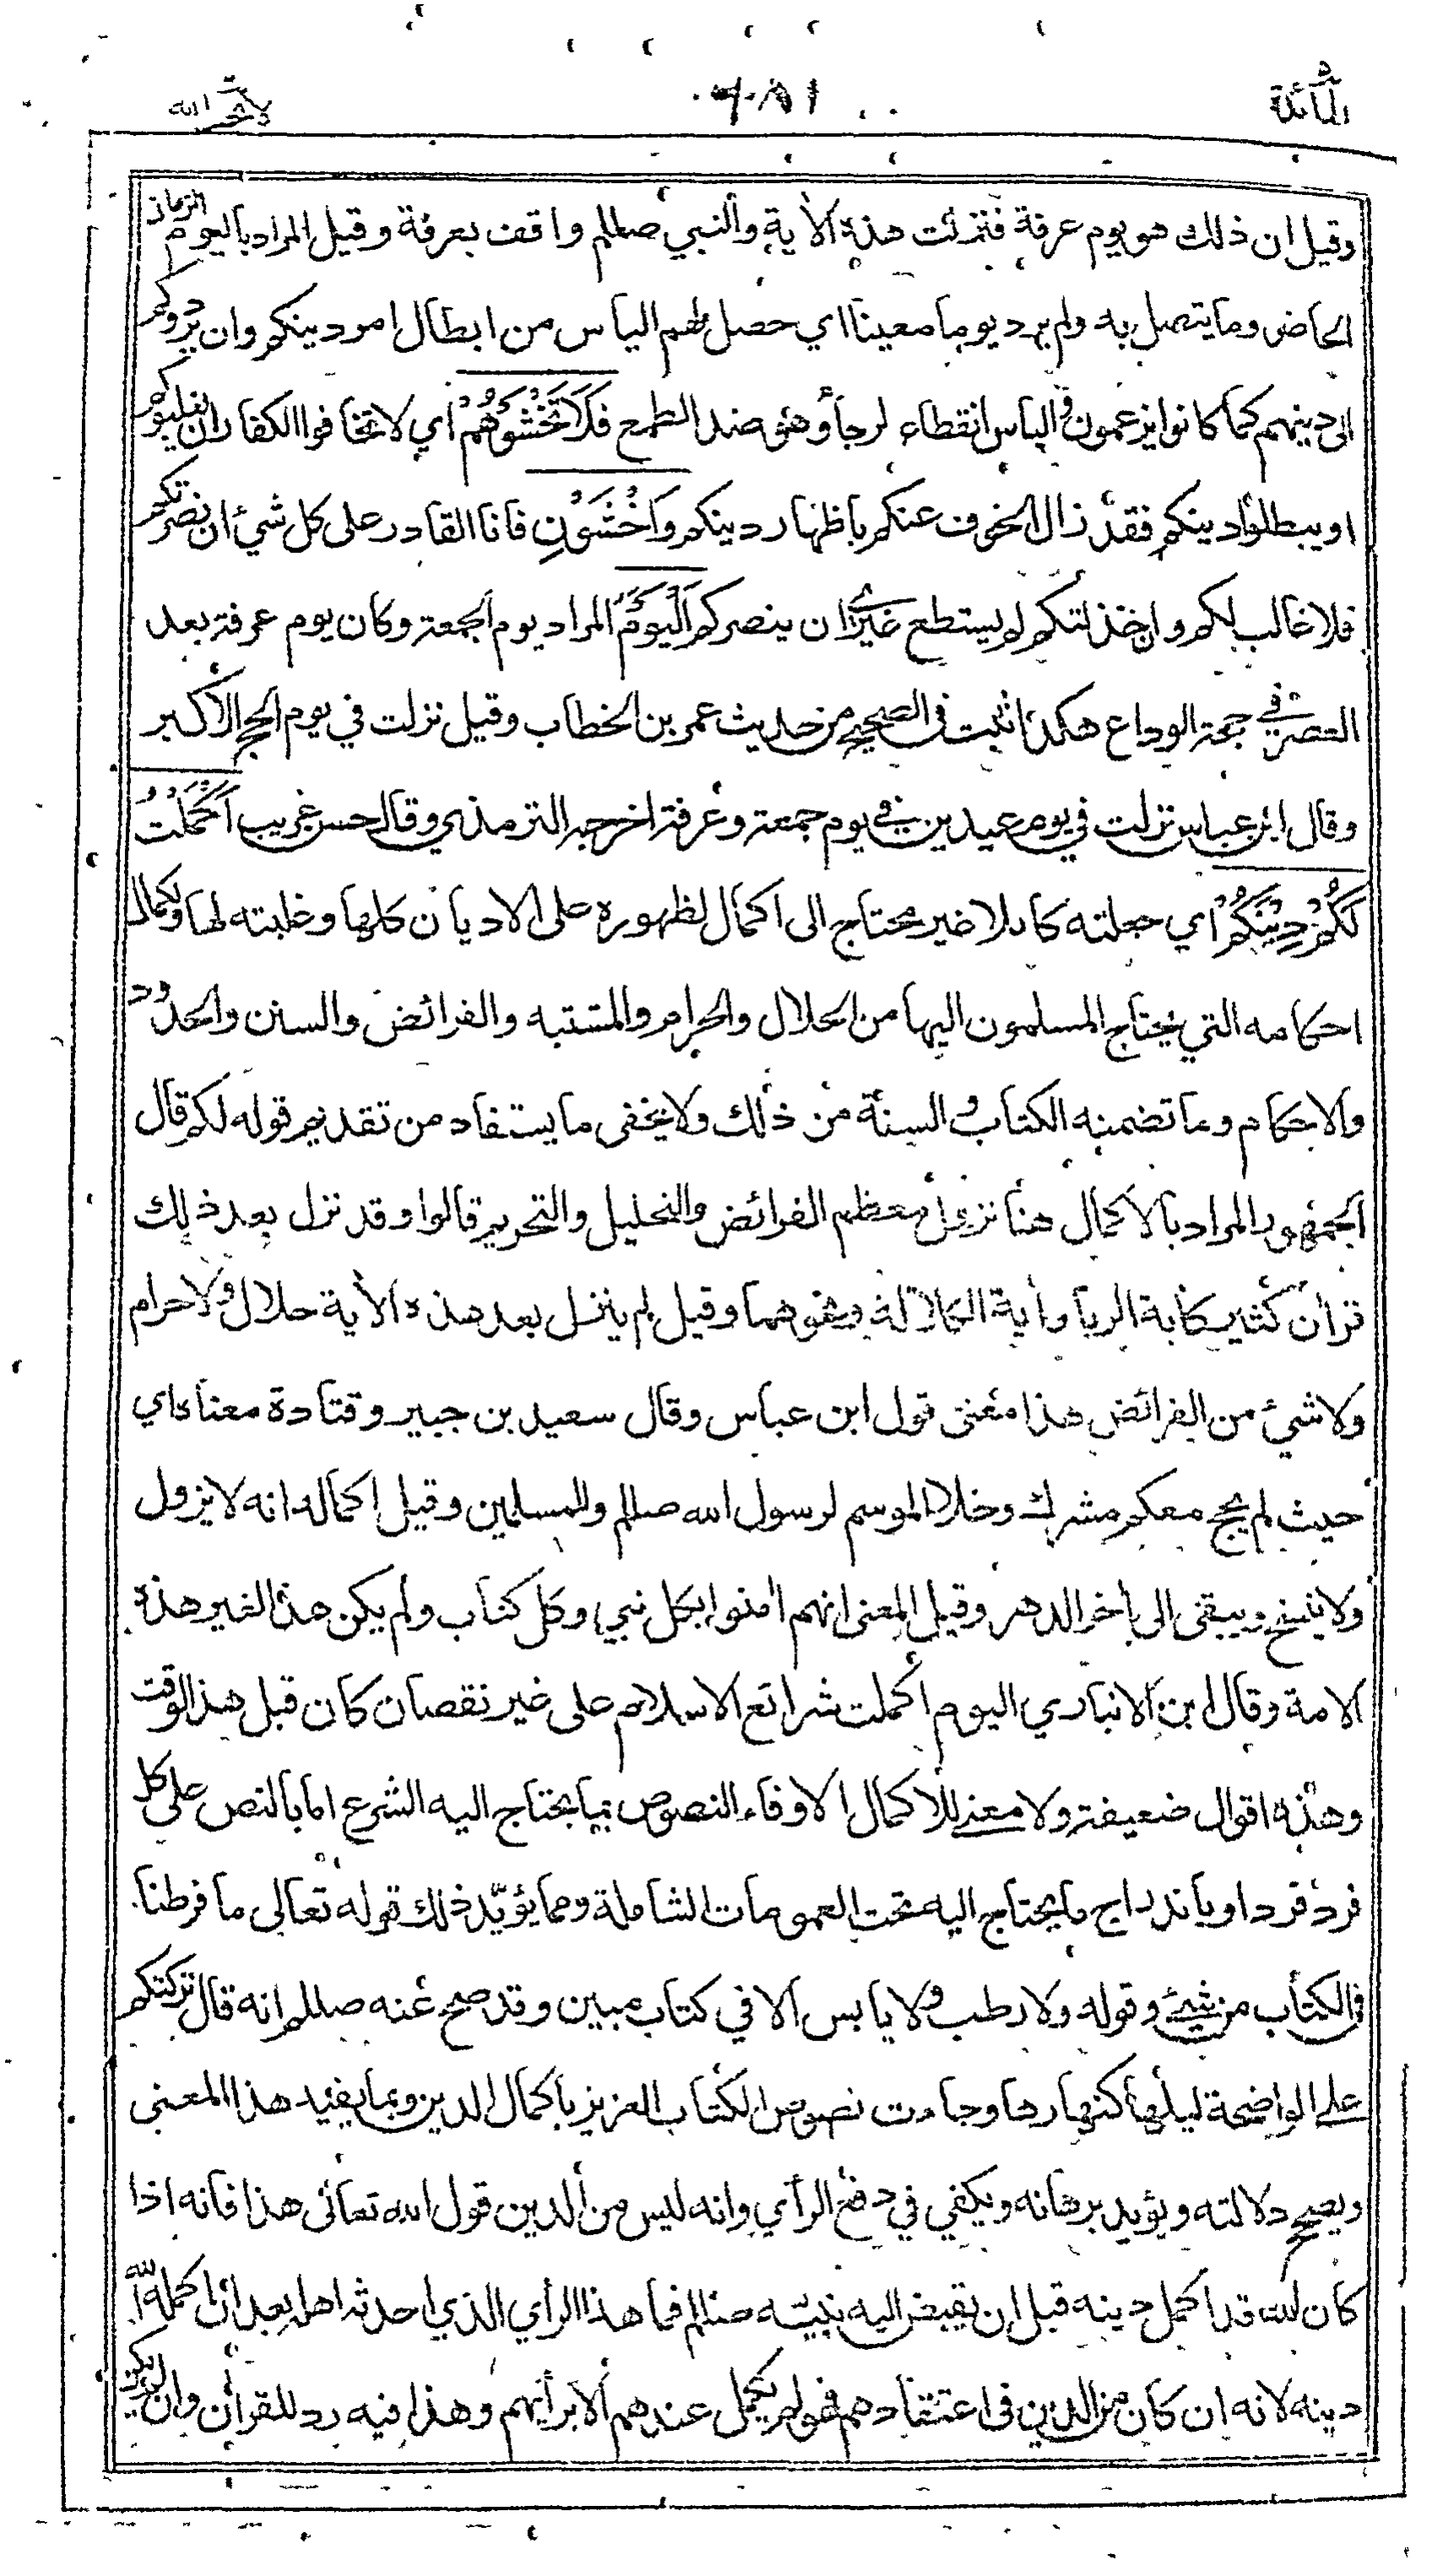 المائدة
لا يحب الله
وقيل ان ذلك هو يوم عرفة فنزلت هذه الأية والنبي صللم واقف بعرفة وقيل المراد باليوم الزمان
الحاضر وما يتصل به ولم يرد يوما معينا اي حصل لهم الياس من ابطال امر دينكم وان يردوكم
الى دينهم كما كانوا يزعمون والياس انقطاء لرجاء وهو ضد الطمع فَلَا تَخْشَوْهُمْ اي لا تخافوا الكفار ان يغلبوكم
او يبطلوا دينكم فقد زال الخوف عنكم باظهار دينكم وَاخْشَوْنِ فانا القادر على كل شيء ان نصرتكم
فلا غالب لكم وان خذلتكم لم يستطع غيري ان ينصركم اَلْيَوْمَ المراد يوم الجمعة وكان يوم عرفة بعد
العصر في حجة الوداع هكذا ثبت في الصحيح من حديث عمر بن الخطاب وقيل نزلت في يوم الحج الاكبر
وقال ابن عباس نزلت في يوم عيدين في يوم جمعة وعرفة اخرجه الترمذي وقال حسن غريب اَكْمَلْتُ
لَكُمْ دِيْنَكُمْ اي جعلته كاملا غير محتاج الى اكمال لظهوره على الاديان كلها وغلبته لها ولكمال
احكامه التي يحتاج المسلمون اليها من الحلال والحرام والمشتبه والفرائض والسنن والحدود
والاحكام وما تضمنه الكتاب والسنة من ذلك ولا يخفى ما يستفاد من تقديم قوله لكم قال
الجمهور المراد بالاكمال هنا نزول معظم الفرائض والتحليل والتحريم قالوا وقد نزل بعد ذلك
قران كثير كأية الربا وأية الكلالة ونحوهما وقيل لم ينزل بعد هذه الأية حلال ولا حرام
ولا شيء من الفرائض هذا معنى قول ابن عباس وقال سعيد بن جبير وقتادة معناه اي
حيث لم يحج معكم مشرك وخلا الموسم لرسول الله صللم وللمسلمين وقيل اكماله انه لا يزول
ولا ينسخ ويبقى الى أخر الدهر وقيل المعنى انهم أمنوا بكل نبي وكل كتاب ولم يكن هذا لغير هذه
الامة وقال ابن الانباري اليوم اكملت شرائع الاسلام على غير نقصان كان قبل هذا الوقت
وهذه اقوال ضعيفة ولا معنى للاكمال الا وفاء النصوص بما يحتاج اليه الشرع اما بالنص على كل
فرد فرد او باندراج ما يحتاج اليه تحت العمومات الشاملة ومما يؤيّد ذلك قوله تعالى ما فرطنا
في الكتاب من شيء وقوله ولا رطب ولا يابس الا في كتاب مبين وقد صح عنه صللم انه قال تركتكم
على الواضحة ليلها كنهارها وجاءت نصوص الكتاب العزيز باكمال الدين وبما يفيد هذا المعنى
ويصحح دلالته ويؤيد برهانه ويكفي في دفع الرأي وانه ليس من الدين قول الله تعالى هذا فانه اذا
كان الله قد اكمل دينه قبل ان يقبض اليه نبيّه صللم فما هذا الرأي الذي احدثه اهله بعد ان اكمل الله
دينه لانه ان كان من الدين في اعتقادهم فهو لم يكمل عندهم الا برأيهم وهذا فيه رد للقرأن وان لم يكن